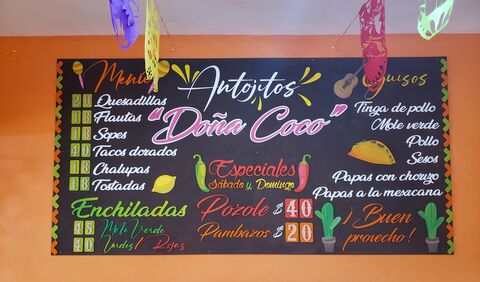 Menú
Antojitos
"Doña Coco"
Guisos
20 Quesadillas
18 Flautas
18 Sopes
40 Tacos dorados
18 Chalupas
18 Tostadas
Enchiladas
45 Mole Verde
40 Verdes/Rojas
Especiales
Sábado y Domingo
Pozole $40
Pambazos $20
Tinga de pollo
Mole verde
Pollo
Sesos
Papas con chorizo
Papas a la mexicana
¡Buen
provecho!